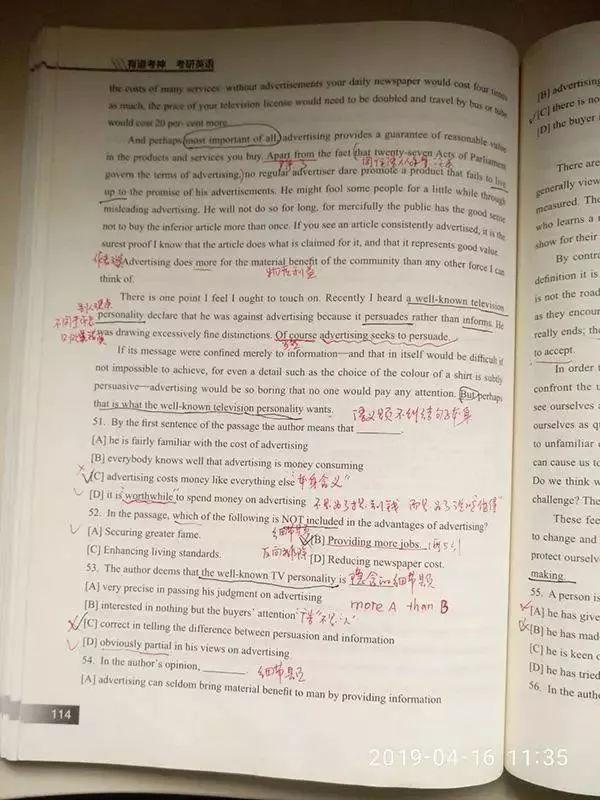 有道考神 考研英语
the costs of many services: without advertisements your daily newspaper would cost four times
as much, the price of your television license would need to be doubled and travel by bus or tube
would cost 20 per cent more.
And perhaps most important of all, advertising provides a guarantee of reasonable value
in the products and services you buy. Apart from the fact that twenty-seven Acts of Parliament
govern the terms of advertising, no regular advertiser dare promote a product that fails to live
up to the promise of his advertisements. He might fool some people for a little while through
misleading advertising. He will not do so for long, for mercifully the public has the good sense
not to buy the inferior article more than once. If you see an article consistently advertised, it is the
surest proof I know that the article does what is claimed for it, and that it represents good value.
Advertising does more for the material benefit of the community than any other force I can
think of.
物质利益
There is one point I feel I ought to touch on. Recently I heard a well-known television
personality declare that he was against advertising because it persuades rather than informs. He
was drawing excessively fine distinctions. Of course advertising seeks to persuade.
If its message were confined merely to information—and that in itself would be difficult if
not impossible to achieve, for even a detail such as the choice of the colour of a shirt is subtly
persuasive—advertising would be so boring that no one would pay any attention. But perhaps
that is what the well-known television personality wants.
51. By the first sentence of the passage the author means that
[A] he is fairly familiar with the cost of advertising
[B] everybody knows well that advertising is money consuming
[C] advertising costs money like everything else
[D] it is worthwhile to spend money on advertising
52. In the passage, which of the following is NOT included in the advantages of advertising?
[A] Securing greater fame.
细节题
[B] Providing more jobs.
[C] Enhancing living standards.
[D] Reducing newspaper cost.
53. The author deems that the well-known TV personality is
[A] very precise in passing his judgment on advertising
[B] interested in nothing but the buyers' attention
more A than B
[C] correct in telling the difference between persuasion and information
[D] obviously partial in his views on advertising
54. In the author's opinion,
细节题
[A] advertising can seldom bring material benefit to man by providing information
114
[B] advertising
[C] there is no
[D] the buyer
There are
generally view
measured. The
who learns a
show for their
By contra
definition it is
is not the road
as they encour
really ends; the
to accept.
In order t
confront the u
see ourselves a
ourselves as q
to unfamiliar
can cause us to
Do we think w
challenge? The
These feel
to change and
protect ourselve
making.
55. A person is
[A] he has give
[B] he has made
[C] he is keen o
[D] he has tried
56. In the autho
2019-04-16 11:35